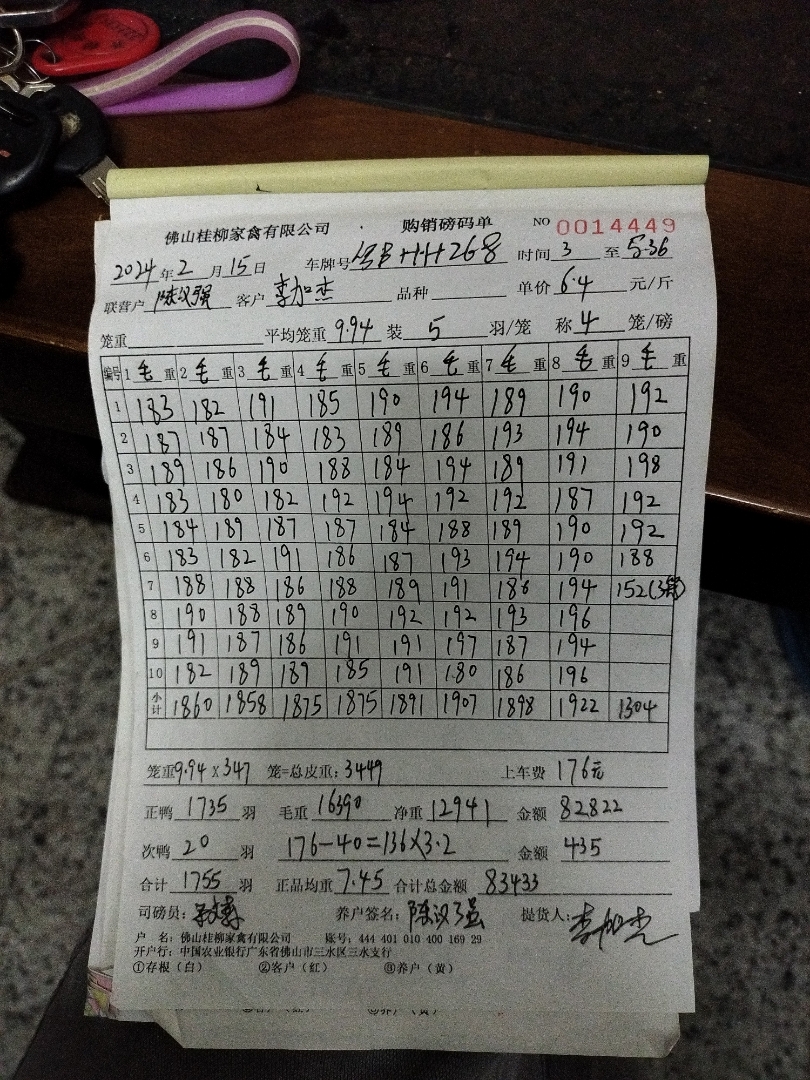 佛山桂柳家禽有限公司 · 购销磅码单 NO 0014449
2024年2月15日 车牌号 HH268 时间 3 至 5:36
联营户 陈汉强 客户 李加杰 品种 单价 6.4 元/斤
笼重 平均笼重 9.94 装 5 羽/笼 称 4 笼/磅
编号 1 毛重 2 毛重 3 毛重 4 毛重 5 毛重 6 毛重 7 毛重 8 毛重 9 毛重
1 183 182 191 185 190 194 189 190 192
2 187 187 184 183 189 186 193 194 190
3 189 186 190 188 184 194 189 191 198
4 183 180 182 192 194 192 192 187 192
5 184 189 187 187 184 188 189 190 192
6 183 182 191 186 187 193 194 190 188
7 188 188 186 188 189 191 186 194 152(3笼)
8 190 188 189 190 192 192 193 196
9 191 187 186 191 191 197 187 194
10 182 189 189 185 191 180 186 196
小计 1860 1858 1875 1875 1891 1907 1898 1922 1304
笼重 9.94 x 347 笼=总皮重: 3449 上车费 176元
正鸭 1735 羽 毛重 16390 净重 12941 金额 82822
次鸭 20 羽 176-40=136×3.2 金额 435
合计 1755 羽 正品均重 7.45 合计总金额 83433
司磅员: 养户签名: 陈汉强 提货人: 李加杰
户 名: 佛山桂柳家禽有限公司 账号: 444 401 010 400 169 29
开户行: 中国农业银行广东省佛山市三水区三水支行
①存根(白) ②客户(红) ③养户(黄)